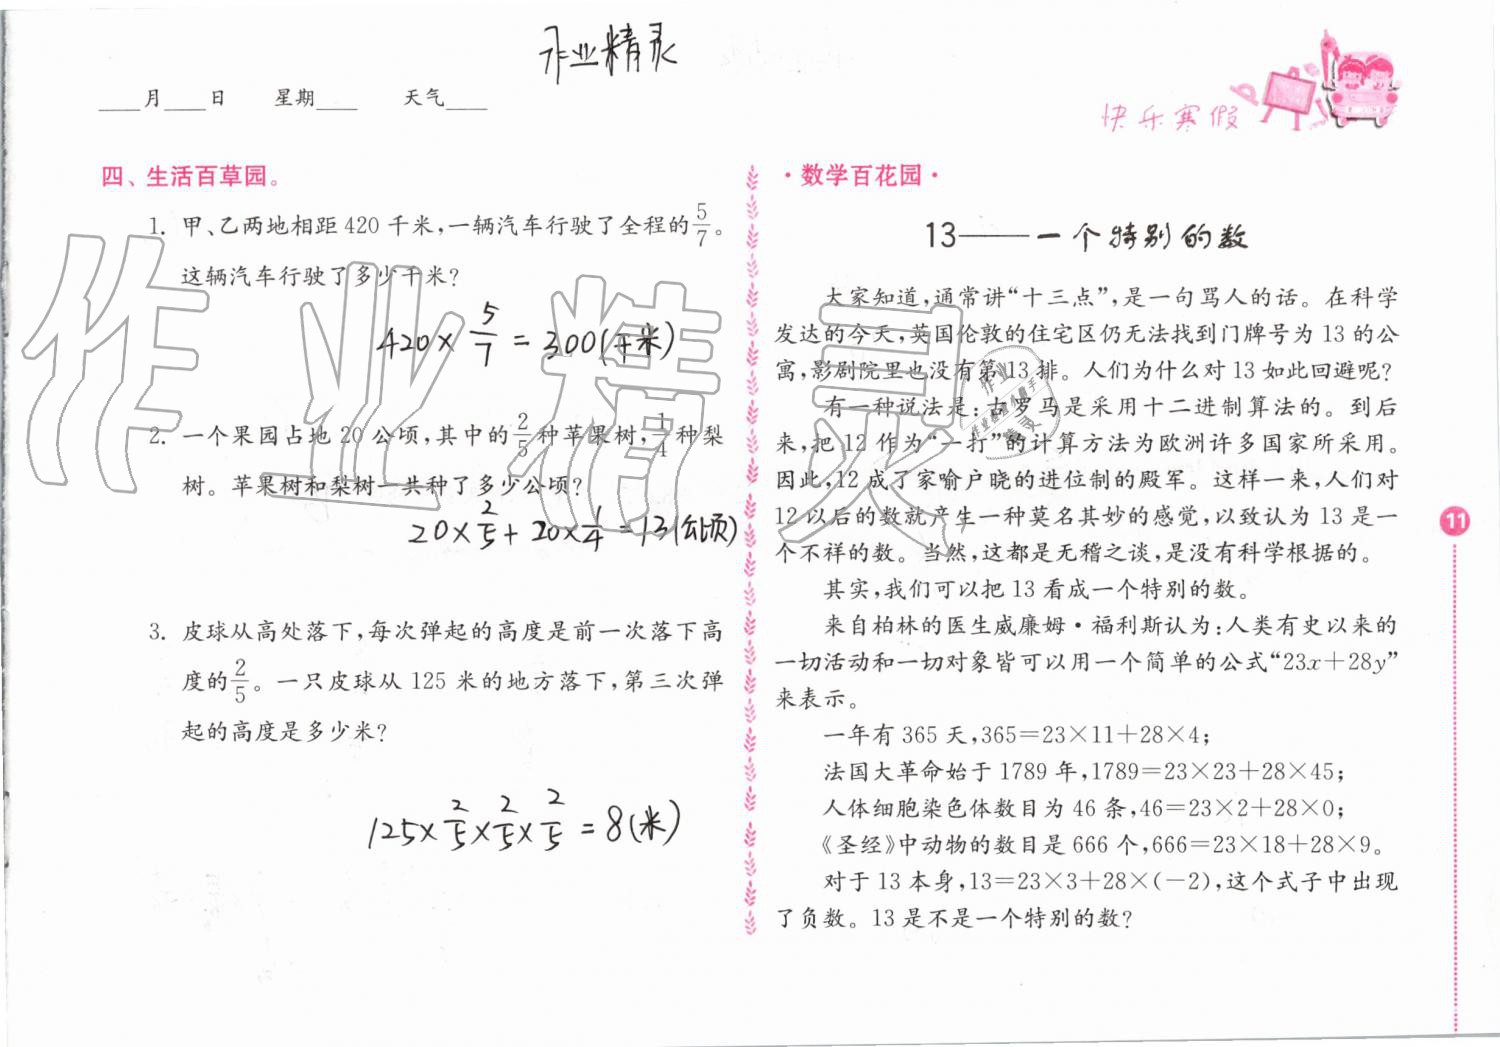 作业精灵
____月____日 星期____ 天气____
快乐寒假
四、生活百草园。
1. 甲、乙两地相距420千米,一辆汽车行驶了全程的5/7。
这辆汽车行驶了多少千米?
420×5/7=300(千米)
2. 一个果园占地20公顷,其中的2/5种苹果树,1/4种梨
树。苹果树和梨树一共种了多少公顷?
20×2/5+20×1/4=13(公顷)
3. 皮球从高处落下,每次弹起的高度是前一次落下高
度的2/5。一只皮球从125米的地方落下,第三次弹
起的高度是多少米?
125×2/5×2/5×2/5=8(米)
·数学百花园·
13——一个特别的数
大家知道,通常讲“十三点”,是一句骂人的话。在科学
发达的今天,英国伦敦的住宅区仍无法找到门牌号为13的公
寓,影剧院里也没有第13排。人们为什么对13如此回避呢?
有一种说法是:古罗马是采用十二进制算法的。到后
来,把12作为“一打”的计算方法为欧洲许多国家所采用。
因此,12成了家喻户晓的进位制的殿军。这样一来,人们对
12以后的数就产生一种莫名其妙的感觉,以致认为13是一
个不祥的数。当然,这都是无稽之谈,是没有科学根据的。
其实,我们可以把13看成一个特别的数。
来自柏林的医生威廉姆·福利斯认为:人类有史以来的
一切活动和一切对象皆可以用一个简单的公式“23x+28y”
来表示。
一年有365天,365=23×11+28×4;
法国大革命始于1789年,1789=23×23+28×45;
人体细胞染色体数目为46条,46=23×2+28×0;
《圣经》中动物的数目是666个,666=23×18+28×9。
对于13本身,13=23×3+28×(-2),这个式子中出现
了负数。13是不是一个特别的数?
11
作业精灵